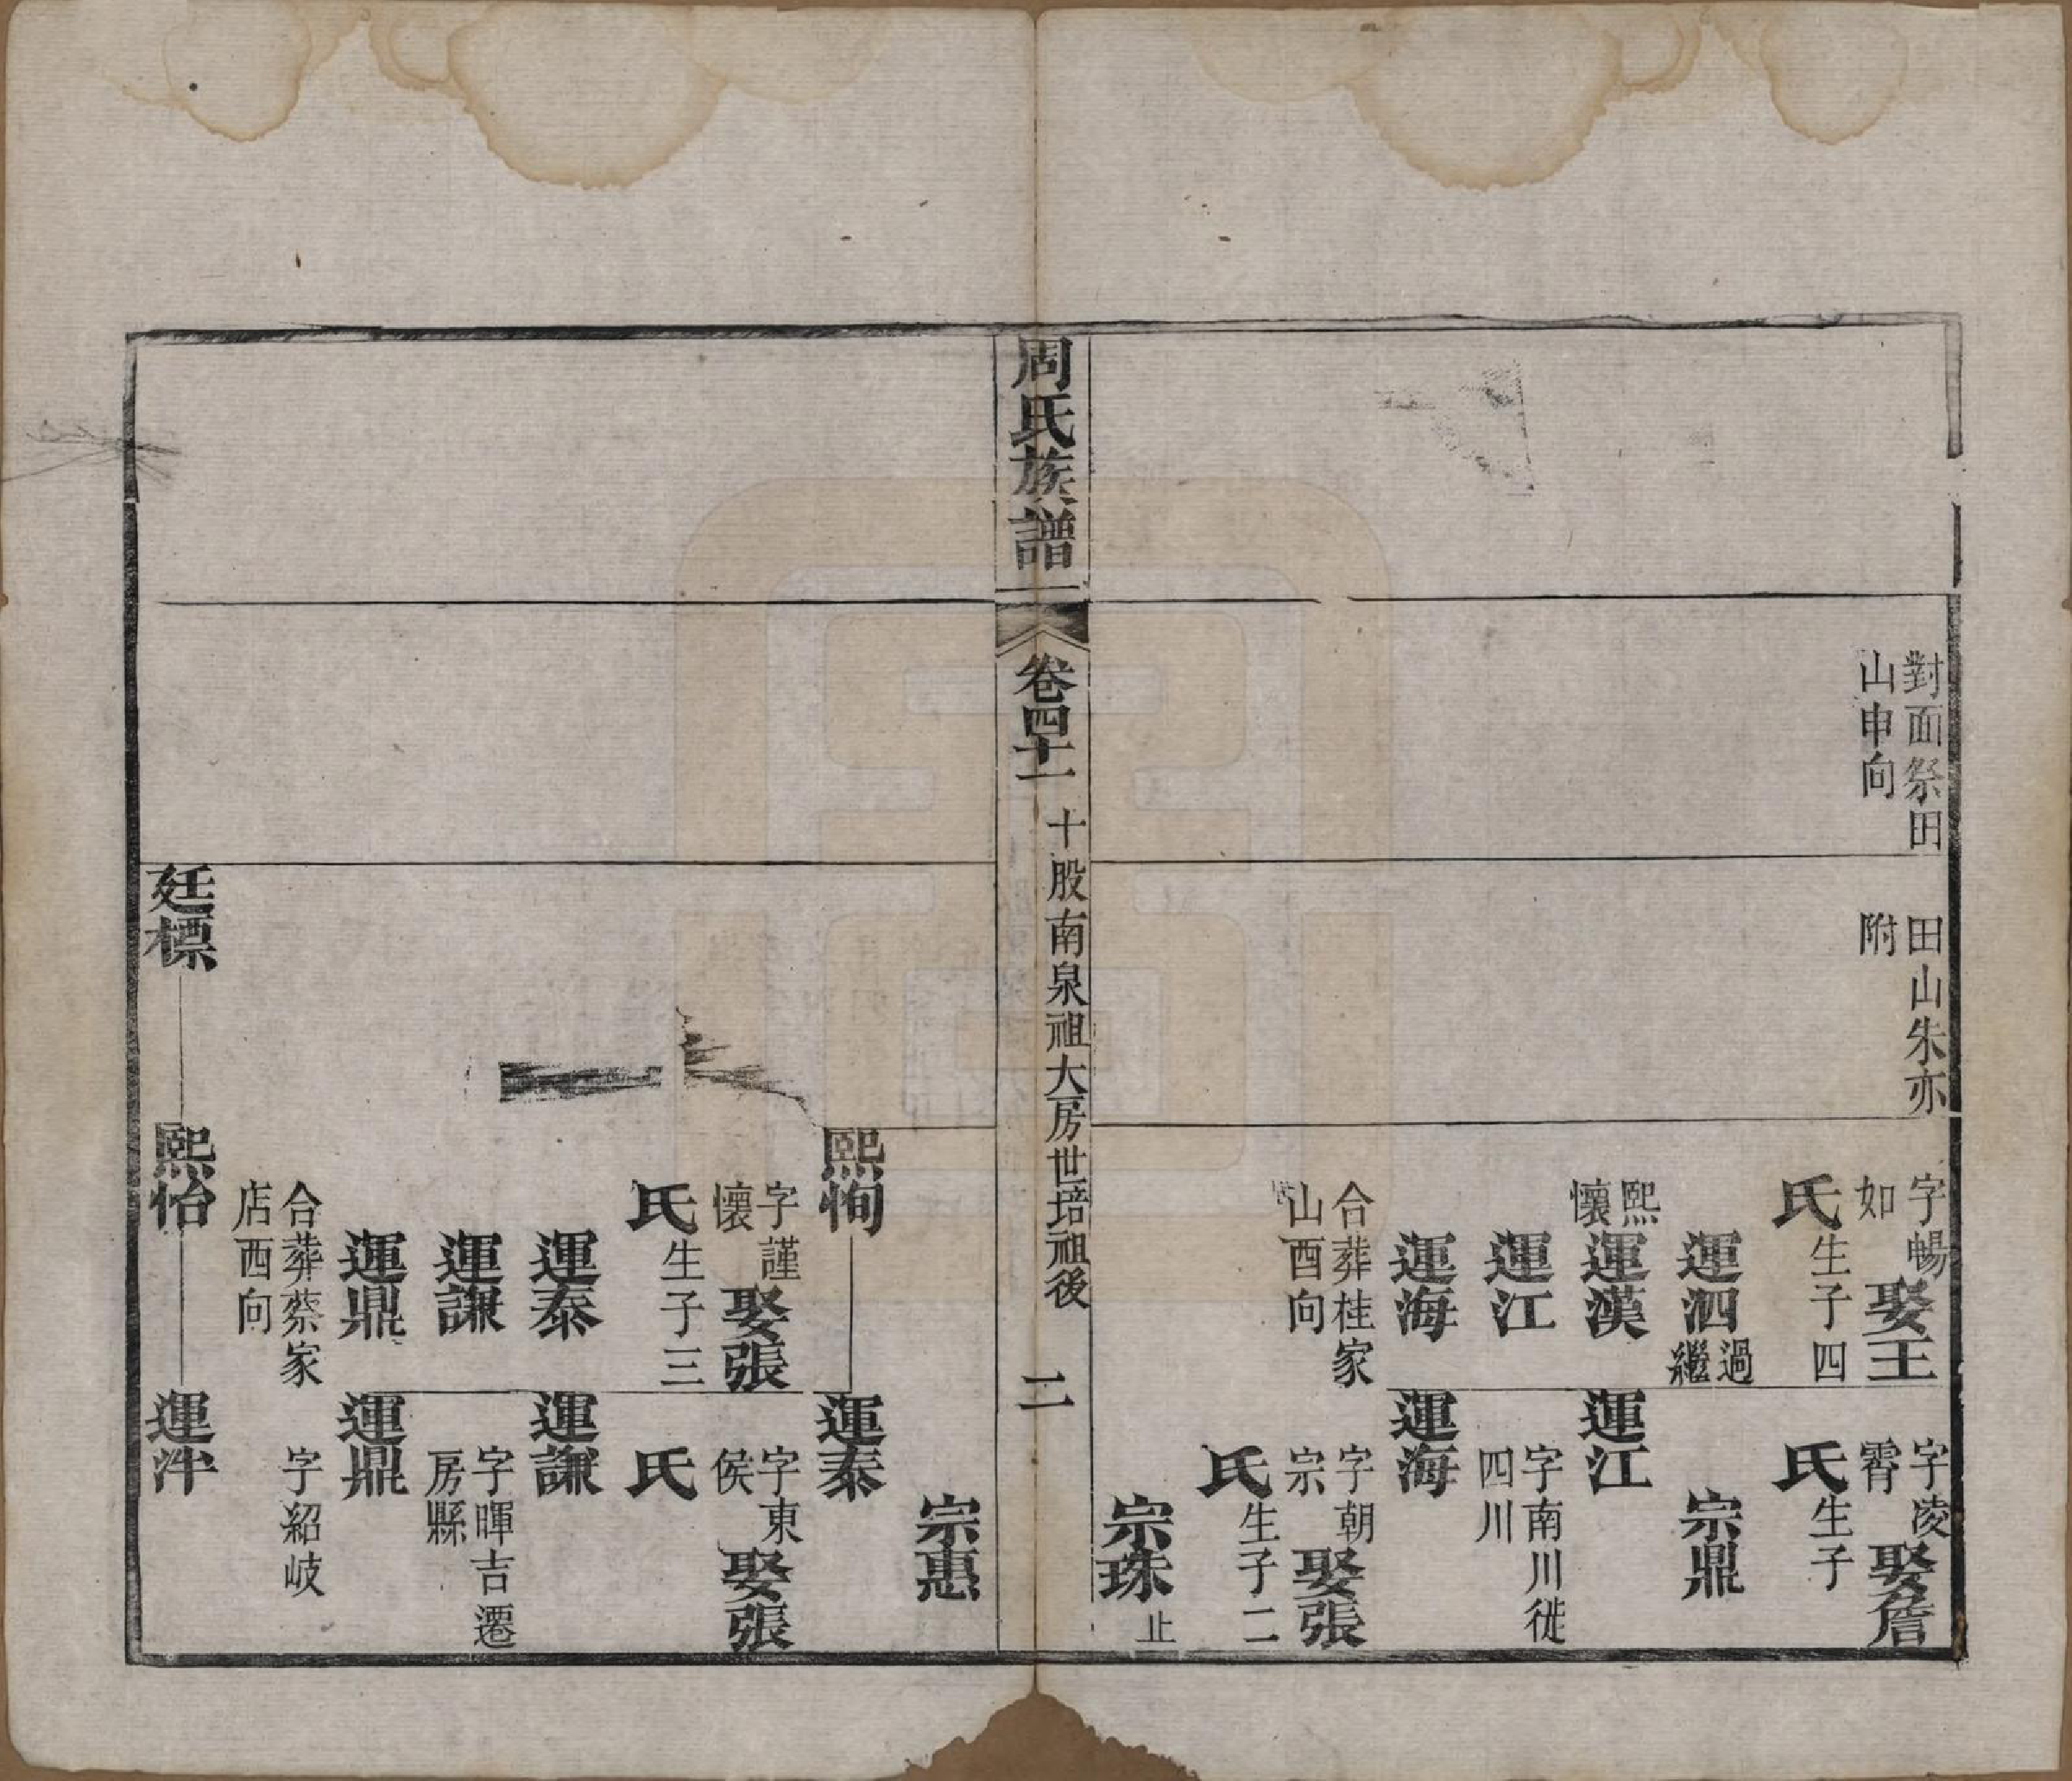 對面祭田
山申向
田山朱亦
附
字暢
如
娶王
氏
生子四
運泗
過
繼
熙
懷
運漢
運江
運海
合葬桂家
山酉向
字凌
霄
娶詹
氏
生子
宗鼎
運江
字南川徙
四川
運海
字朝
宗
娶張
氏
生子二
宗珠
止
周氏族譜
卷四十一
十股南泉祖大房世培祖後
二
宗惠
熙恂
運泰
字謹
懷
娶張
氏
生子三
運泰
運謙
運鼎
合葬蔡家
店酉向
字東
侯
娶張
氏
運謙
字暉吉遷
房縣
運鼎
字紹岐
廷標
熙怡
運泮